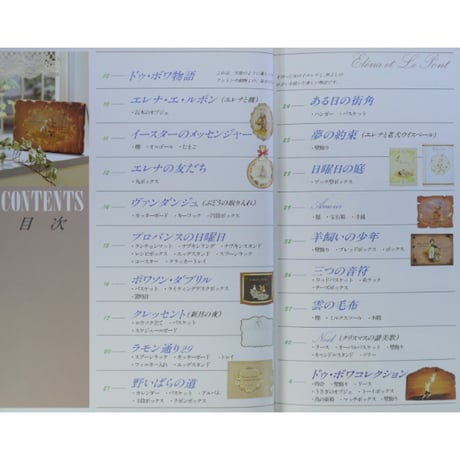 CONTENTS
目 次
ドゥ・ボワ物語
エレナ・エ・ルポン(エレナと橋)
イースターのメッセンジャー
エレナの友だち
ヴァンダンジュ(ぶどうの取り入れ)
・カッターボード ・キーフック ・円筒ボックス
プロバンスの日曜日
・ランチョンマット ・ナプキンリング ・ナプキンスタンド
・レシピボックス ・エッグスタンド ・スプーンラック
・コースター ・クラッカートレイ
ポワソン・ダブリル
・バスケット ・ライティングデスクボックス
クレッセント(新月の夜)
・スケジュールボード
ラモン通り29
・スプーンラック ・カッターボード ・トレイ
・フィルター入れ ・エッグスタンド
野いばらの道
・カレンダー ・バスケット ・アルバム
・3段ボックス ・リボンボックス
Elena et Le Pont
ある日の街角
・ハンガー ・バスケット
夢の約束(エレナと老犬ウイスペール)
・壁飾り
日曜日の庭
・ブック型ボックス
Amour
・額 ・宝石箱 ・手鏡
羊飼いの少年
・壁飾り ・ブレッドボックス ・ボックス
三つの音符
・ウッドバスケット ・缶ラック
・チーズボックス
雲の毛布
・樽 ・ミルクスツール ・木靴
Noël(クリスマスの讃美歌)
・リース ・オーバルバスケット ・壁飾り
・キャンドルスタンド ・ツリー
ドゥ・ボワコレクション
・時計 ・壁飾り ・リース
・うさぎのオブジェ ・トーイボックス
・鳥の巣箱 ・マッチボックス ・壁飾り